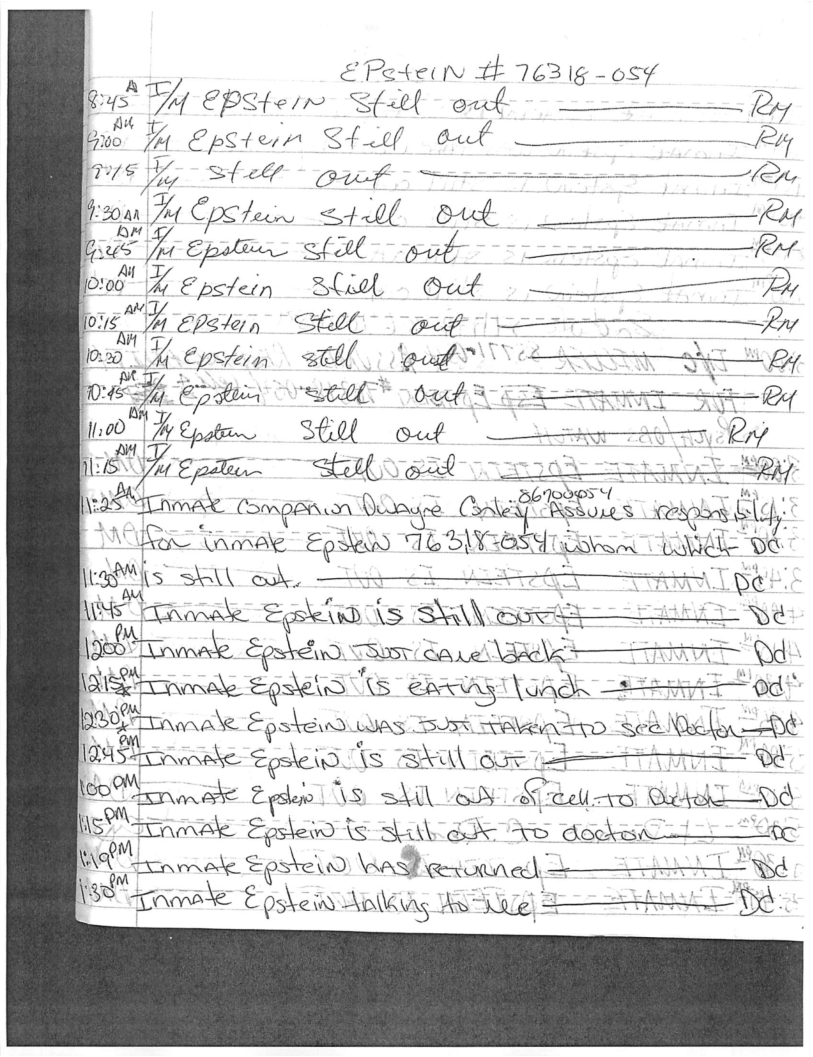 EPsteIN # 76318-054
8:45 A I/M EPStEIN Still out RM
9:00 AM I/M EpStein Still out RM
9:15 I/M Still out RM
9:30 AM I/M Epstein Still out RM
9:45 AM I/M Epstein Still out RM
10:00 AM I/M Epstein Still out RM
10:15 AM I/M EPStein Still out RM
10:30 AM I/M Epstein still out RM
10:45 AM I/M Epstein still out RM
11:00 AM I/M Epstein Still out RM
11:15 AM I/M Epstein Still out RM
86700054
11:25 AM Inmate Companion Dwayne Assures responsibility
for inmate Epstein 76318-054 whom which DC
11:30 AM is still out. DC
11:45 AM Inmate Epstein is Still out DC
12:00 PM Inmate Epstein Just came back DC
12:15 PM Inmate Epstein is eating lunch DC
12:30 PM Inmate Epstein was Just taken to see Doctor DC
12:45 PM Inmate Epstein is still out DC
1:00 PM Inmate Epstein is still out of cell to Doctor DC
1:15 PM Inmate Epstein is still out to doctor DC
1:19 PM Inmate Epstein has returned DC
1:30 PM Inmate Epstein talking to me DC